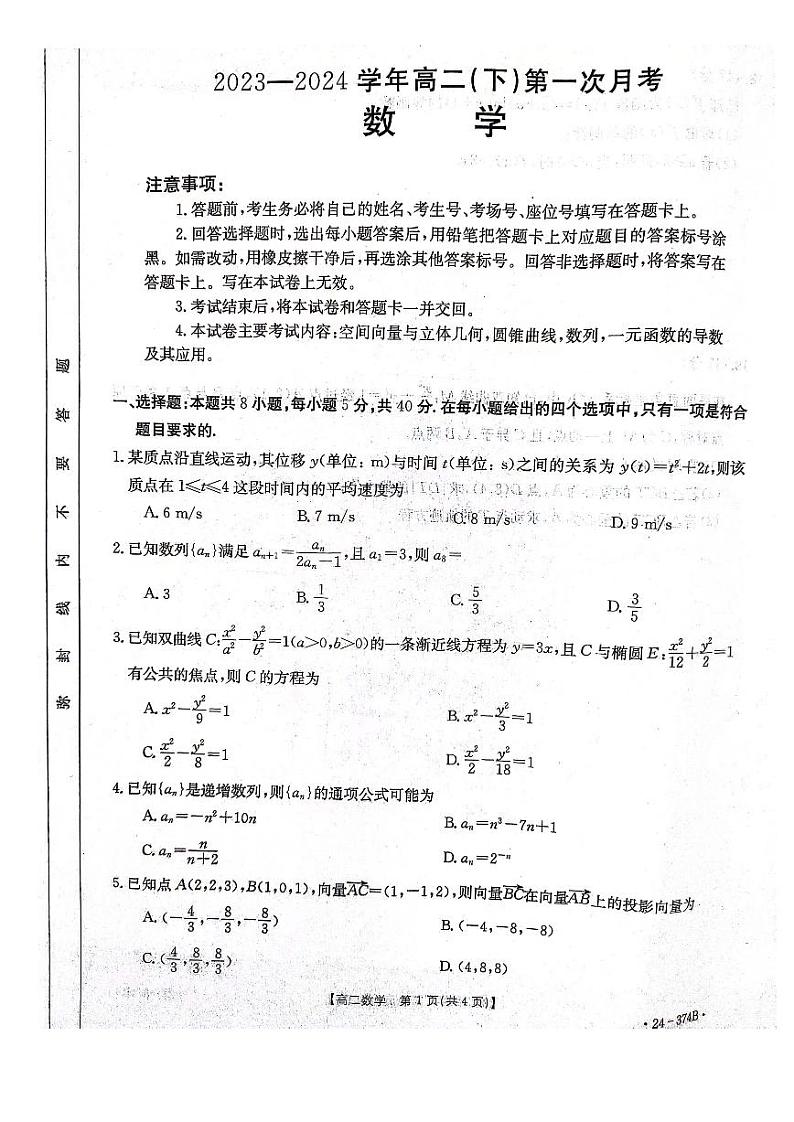 2023—2024学年高二(下)第一次月考
数 学
注意事项:
1.答题前,考生务必将自己的姓名、考生号、考场号、座位号填写在答题卡上。
2.回答选择题时,选出每小题答案后,用铅笔把答题卡上对应题目的答案标号涂
黑。如需改动,用橡皮擦干净后,再选涂其他答案标号。回答非选择题时,将答案写在
答题卡上。写在本试卷上无效。
3.考试结束后,将本试卷和答题卡一并交回。
4.本试卷主要考试内容:空间向量与立体几何,圆锥曲线,数列,一元函数的导数
及其应用。
一、选择题:本题共8小题,每小题5分,共40分.在每小题给出的四个选项中,只有一项是符合
题目要求的.
1.某质点沿直线运动,其位移y(单位:m)与时间t(单位:s)之间的关系为y(t)=t²+2t,则该
质点在1≤t≤4这段时间内的平均速度为
A.6 m/s B.7 m/s C.8 m/s D.9 m/s
2.已知数列{aₙ}满足aₙ₊₁=aₙ/(2aₙ−1),且a₁=3,则a₈=
A.3 B.1/3 C.5/3 D.3/5
3.已知双曲线C:x²/a²−y²/b²=1(a>0,b>0)的一条渐近线方程为y=3x,且C与椭圆E:x²/12+y²/2=1
有公共的焦点,则C的方程为
A.x²−y²/9=1 B.x²−y²/3=1
C.x²/2−y²/8=1 D.x²/2−y²/18=1
4.已知{aₙ}是递增数列,则{aₙ}的通项公式可能为
A.aₙ=−n²+10n B.aₙ=n³−7n+1
C.aₙ=n/(n+2) D.aₙ=2⁻ⁿ
5.已知点A(2,2,3),B(1,0,1),向量AC→=(1,−1,2),则向量BC→在向量AB→上的投影向量为
A.(−4/3,−8/3,−8/3) B.(−4,−8,−8)
C.(4/3,8/3,8/3) D.(4,8,8)
【高二数学 第1页(共4页)】
·24-374B·
密封线内不要答题